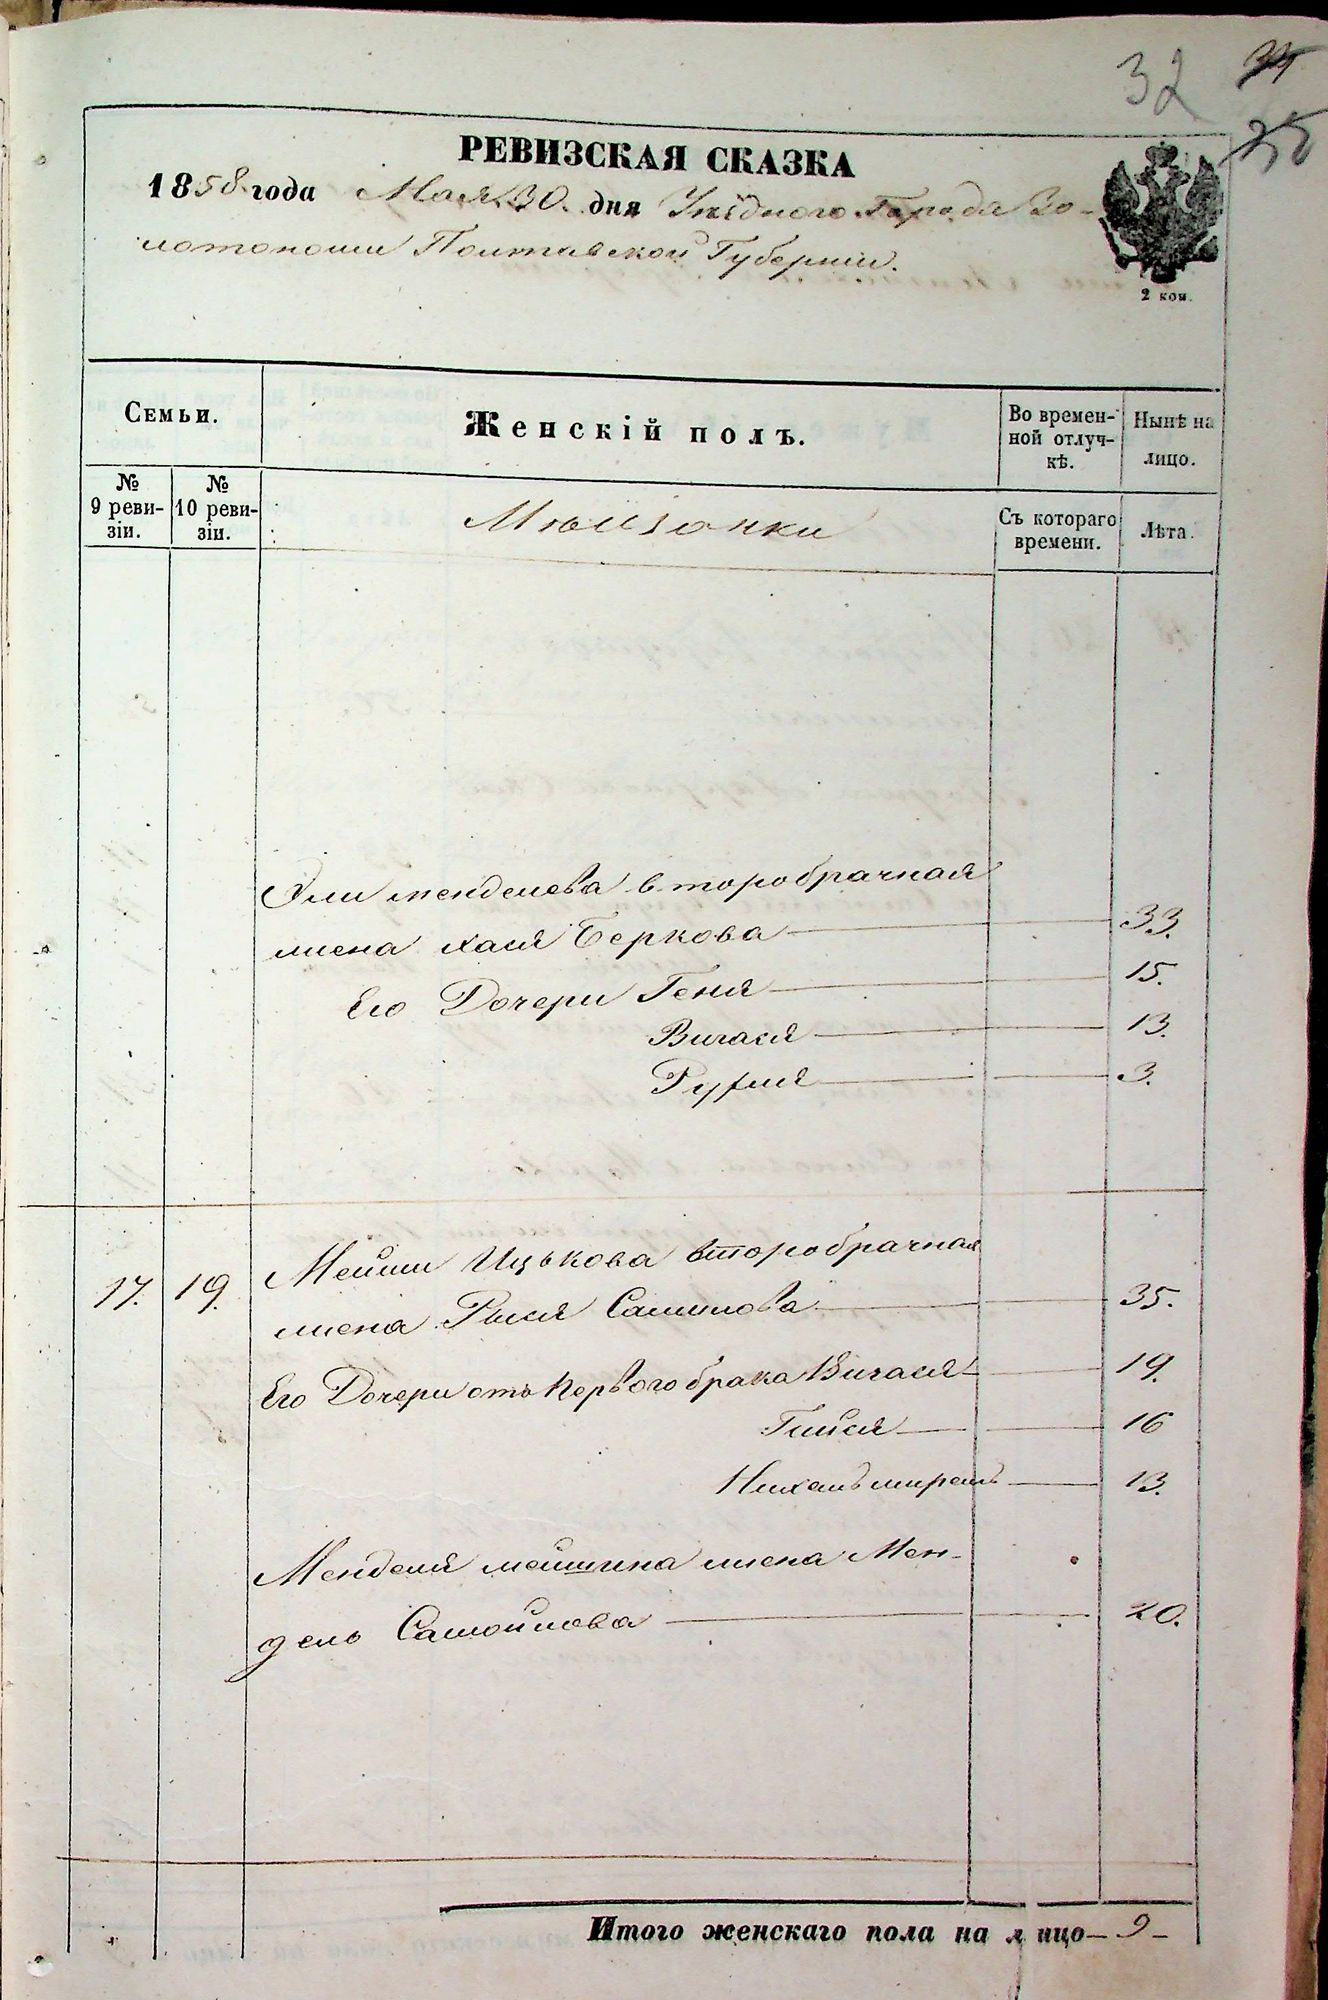 32 34
25
РЕВИЗСКАЯ СКАЗКА
1858 года Мая 30 дня Уѣзднаго Города Зо-
лотоноши Полтавской Губерніи.
2 коп.
Семьи.
Женскій полъ.
Во времен-
ной отлуч-
кѣ.
Нынѣ на
лицо.
№
9 реви-
зіи.
№
10 реви-
зіи.
Мѣщанки
Съ котораго
времени.
Лѣта.
Эли менделева второбрачная
жена хася Беркова 33.
Его Дочери Геня 15.
Бичася 13.
Рухля 3.
17. 19. Мейши Ицькова второбрачная
жена Рыся 35.
Его Дочери отъ Первого брака Бичася 19.
16
13.
Менделя мейшина жена Мен-
дель Самойлова 20.
Итого женскаго пола на лицо 9